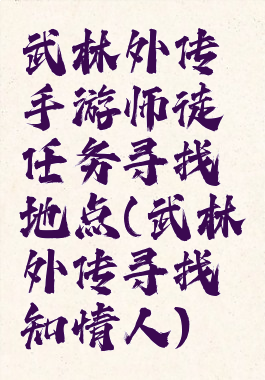 武林外传
手游师徒
任务寻找
地点(武林
外传寻找
知情人)